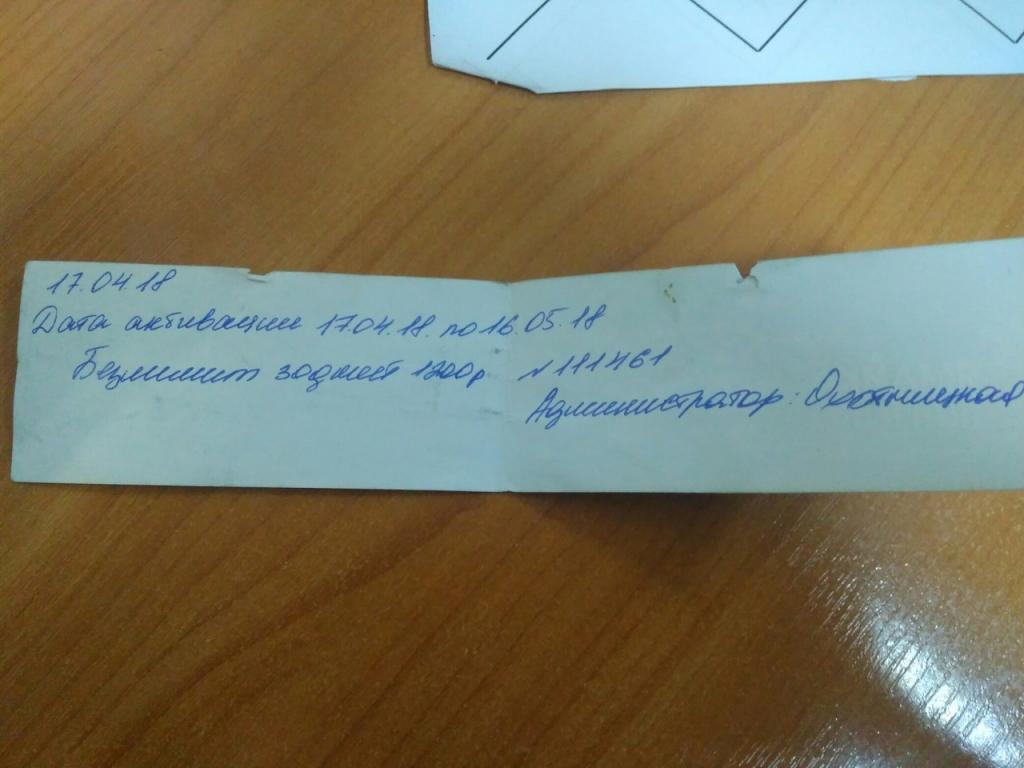 17.04.18
Дата активации 17.04.18. по 16.05.18
Безлимит 1200р
№ 111461
Администратор: